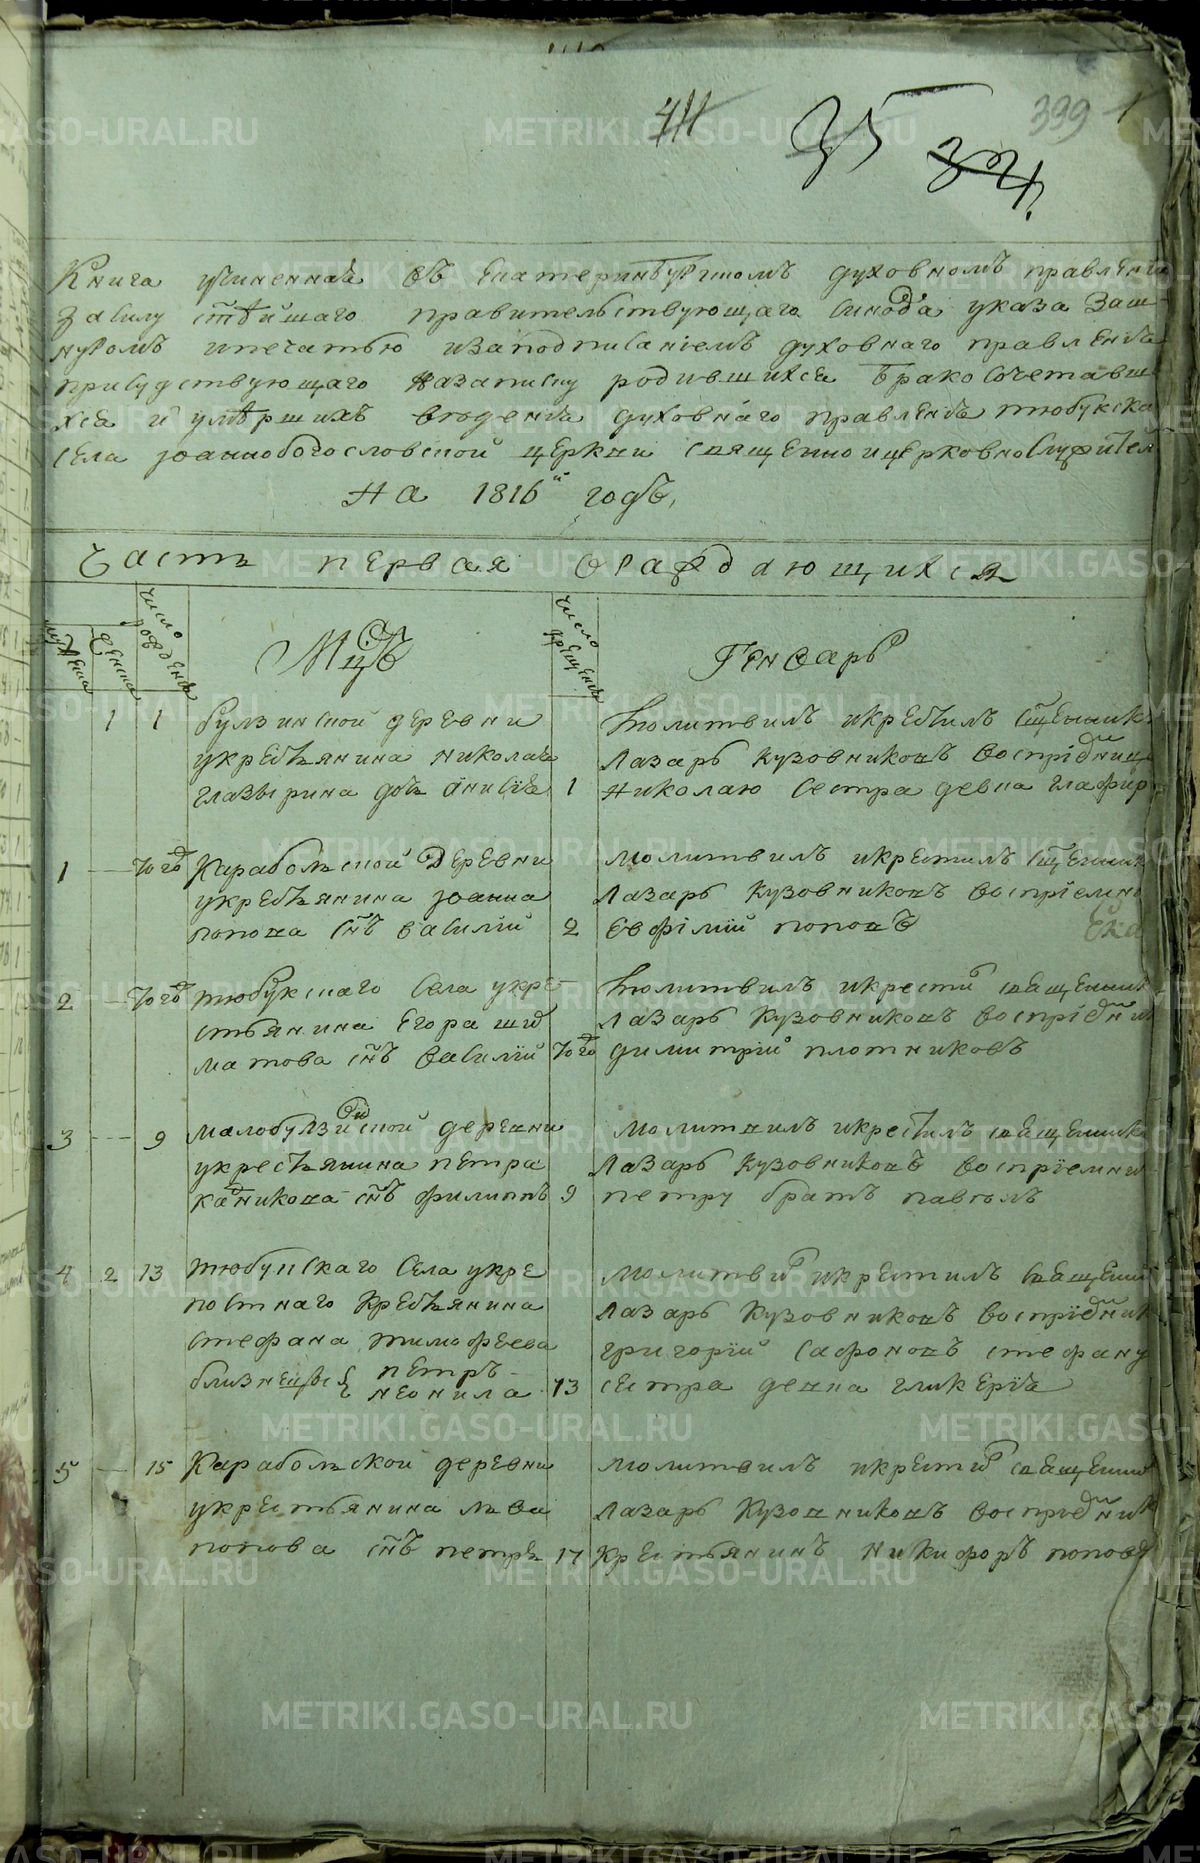 411 35 324 399 1
Книга учиненная въ екатеринбургскомъ духовномъ правлении
засилу стѣйшаго правительствующаго синода указа за ш
нуромъ ипечатью изаподписаніемъ духовнаго правленія
присудствующаго назаписку родившихся бракосочетавши
хся и умѣршихъ вѣденія духовнаго правленія тюбукска
села іоаннобогословской церкви священноицерковнослужител
на 1816й годъ,
Часть первая ораждающихся
мужеска
женска
число рождения
Мцъ
число крещения
Генварь
1 1 булзинской деревни
укрестьянина николая
глазырина дочь анисія 1
молитвилъ икрестилъ сщенникъ
Лазарь кузовниковъ воспріемниц
николаю сестра девка глафир
1 того Карабольской деревни
укрестьянина іоанна
попова снъ василий 2
молитвилъ икрестилъ сщенник
Лазарь кузовниковъ воспріемни
евфімій поповъ
2 того тюбукскаго села укре
стьянина егора
матова снъ василий того
молитвилъ икрестил священник
лазарь кузовниковъ воспріемник
димитрий плотниковъ
3 9 малобулзинской деревни
укрестьянина петра
кадникова снъ филиппъ 9
молитвилъ икрестилъ священник
лазарь кузовниковъ воспріемни
петру братъ павелъ
4 2 13 тюбукскаго села укре
постнаго крестьянина
стефана тимофеева
близнецы петръ
неонила 13
молитвил икрестилъ священни
лазарь кузовниковъ воспріемник
григорій сафоновъ стефану
сестра девка гликерія
5 15 Карабольской деревни
укрестьянина льва
попова снъ петръ 17
молитвилъ икрестил священни
лазарь кузовниковъ воспріемник
крестьянинъ никифоръ поповъ
METRIKI.GASO-URAL.RU